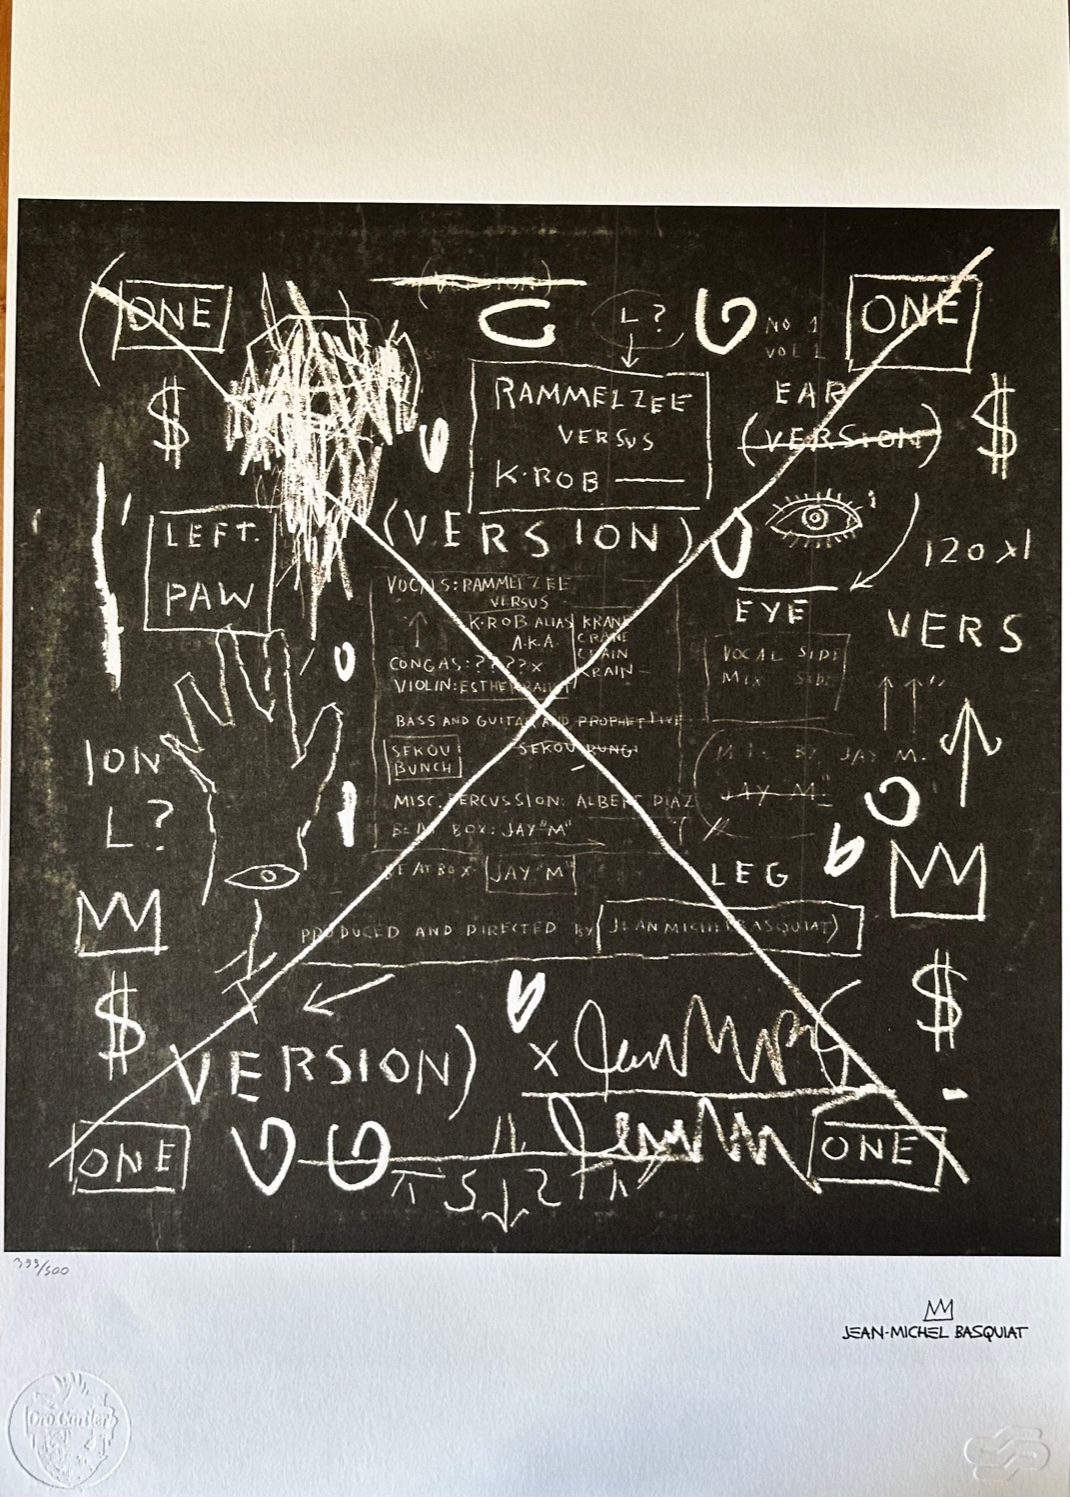 (VERSION)
ONE
L?
NO 1
VOL 1
ONE
RAMMELZEE
VERSUS
K-ROB
EAR
(VERSION)
$
$
LEFT.
PAW
(VERSION)
120 XI
EYE
VERS
VOCALS: RAMMELZEE
VERSUS
K-ROB ALIAS
A.K.A.
KRANE
CRANE
CHAIN
KRAIN
CONGAS: ????X
VIOLIN: ESTHER
BASS AND GUITAR AND PROPHET LIVE
SEKOU
BUNCH
SEKOU BUNGI
MISC. PERCUSSION: ALBERT DIAZ
BEAT BOX: JAY "M"
BEAT BOX JAY "M"
VOCAL SIDE
MIX SIDE
MIX BY JAY M.
JAY M."
ION
L?
LEG
PRODUCED AND DIRECTED BY (JEAN MICHEL BASQUIAT)
$
$
VERSION)
X
ONE
ONE
500
JEAN-MICHEL BASQUIAT